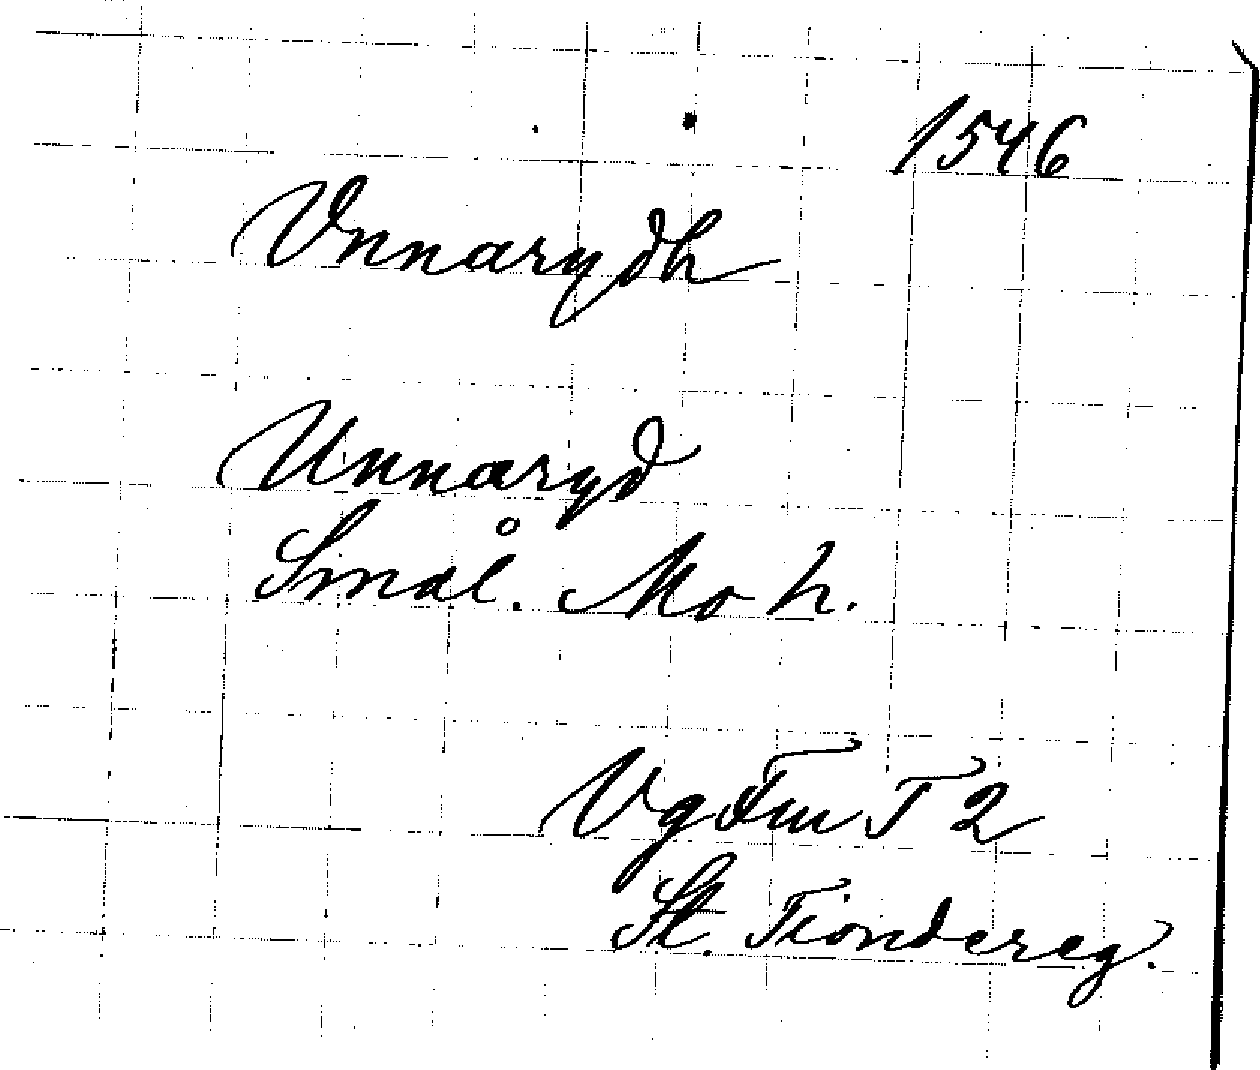 1546
Vnnarydh
Unnaryd
Smål. Mo h.
Vg Fm T 2
St. Tiondereg.